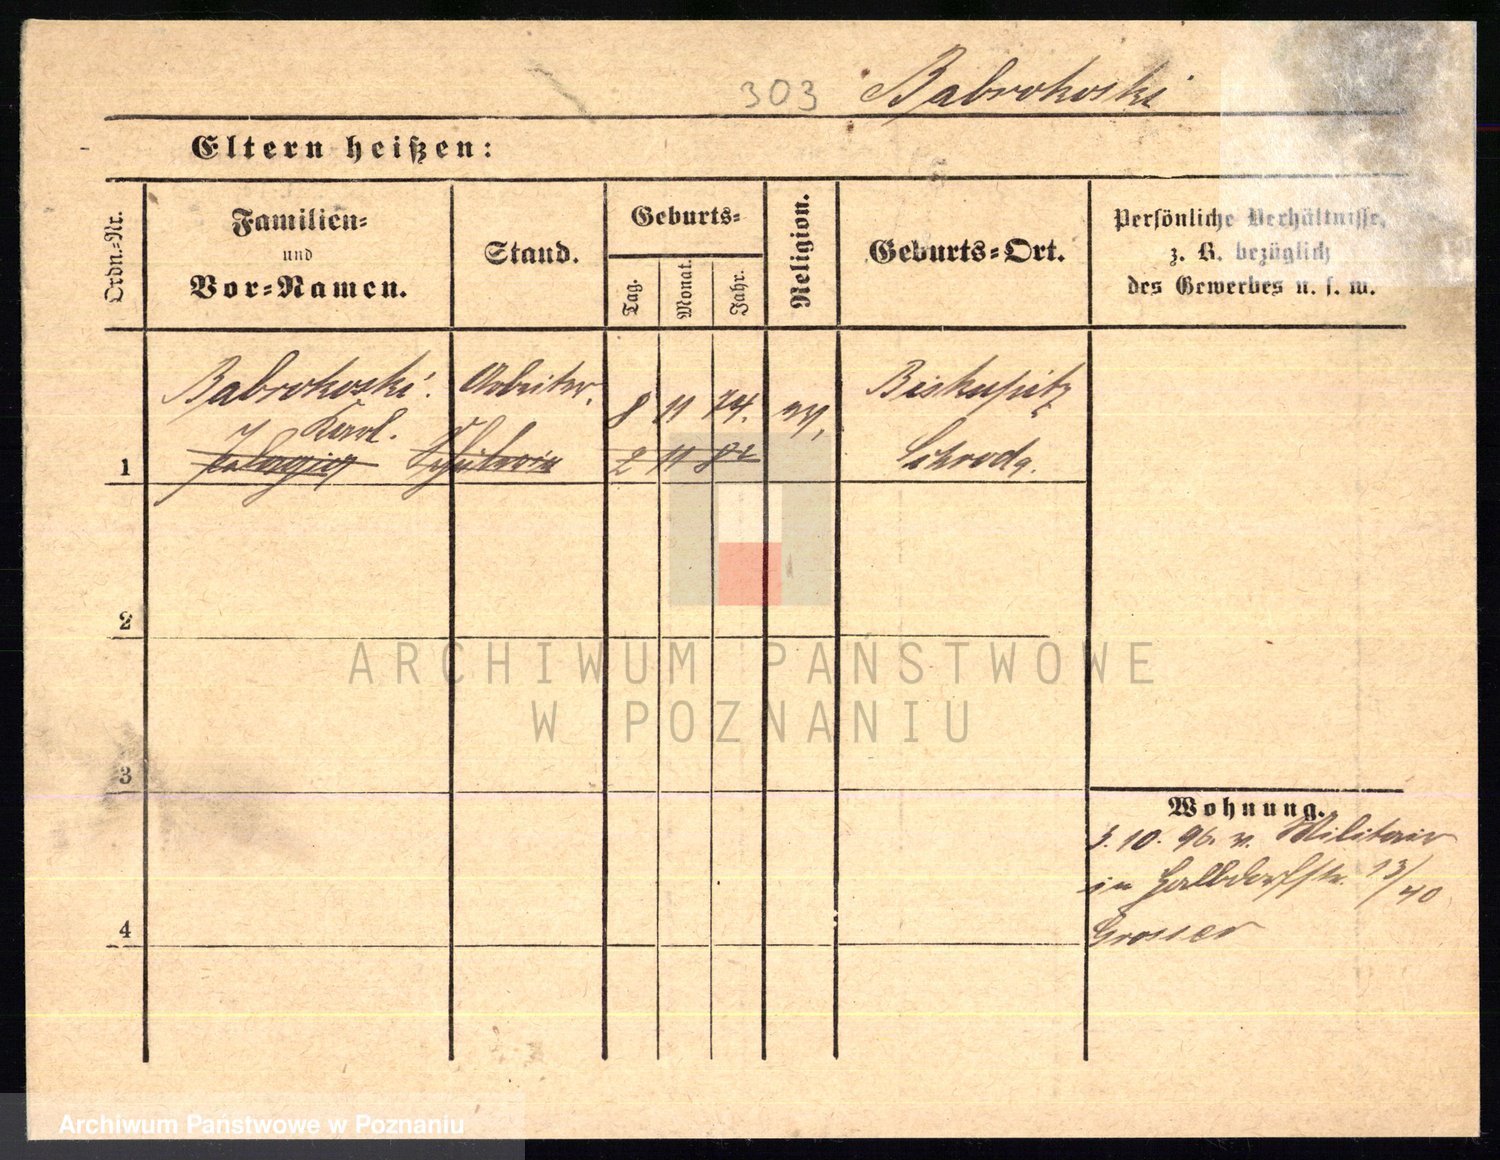 303 Babrokoski
Eltern heißen:
Ordn.-Nr.
Familien-
und
Vor-Namen.
Stand.
Geburts-
Tag.
Monat.
Jahr.
Religion.
Geburts-Ort.
Persönliche Verhältnisse,
z. B. bezüglich
des Gewerbes u. s. w.
Babrokoski
Karl.
Arbeiter,
8 11 74.
Biskupitz
Schroda.
1
2 11 82
2
ARCHIWUM PAŃSTWOWE
W POZNANIU
3
Wohnung.
3. 10. 96. v. Militair
in Halbdorfstr. 13/40
Grosser
4
Archiwum Państwowe w Poznaniu